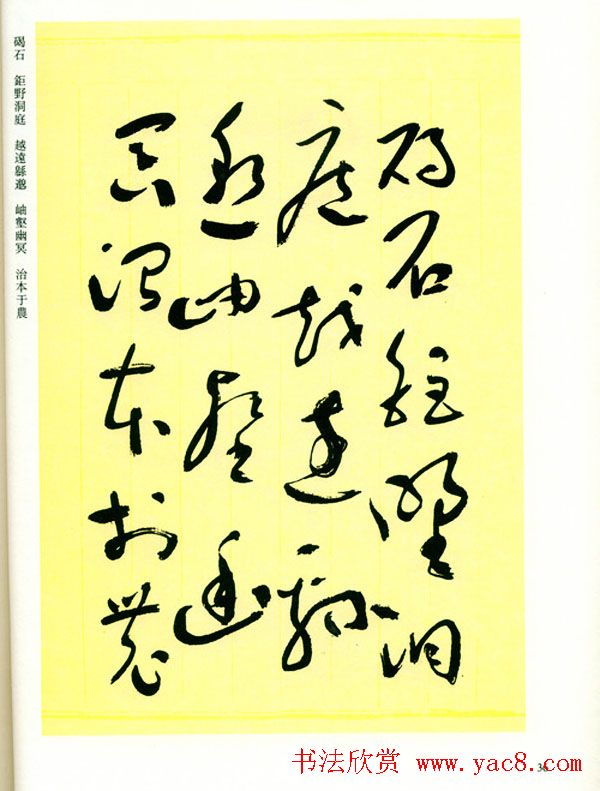 碣石鉅野洞
庭越遠緜
邈岫壑幽
冥治本於農
碣石 鉅野洞庭 越遠緜邈 岫壑幽冥 治本于農
书法欣赏 www.yac8.com